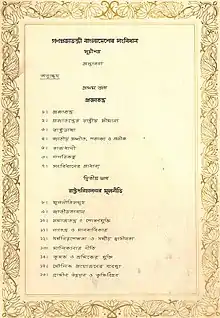 গণপ্রজাতন্ত্রী বাংলাদেশের সংবিধান
সূচীপত্র
প্রস্তাবনা
অনুচ্ছেদ
প্রথম ভাগ
প্রজাতন্ত্র
১। প্রজাতন্ত্র
২। প্রজাতন্ত্রের রাষ্ট্রীয় সীমানা
৩। রাষ্ট্রভাষা
৪। জাতীয় সঙ্গীত, পতাকা ও প্রতীক
৫। রাজধানী
৬। নাগরিকত্ব
৭। সংবিধানের প্রাধান্য
দ্বিতীয় ভাগ
রাষ্ট্রপরিচালনার মূলনীতি
৮। মূলনীতিসমূহ
৯। জাতীয়তাবাদ
১০। সমাজতন্ত্র ও শোষণমুক্তি
১১। গণতন্ত্র ও মানবাধিকার
১২। ধর্মনিরপেক্ষতা ও ধর্মীয় স্বাধীনতা
১৩। মালিকানার নীতি
১৪। কৃষক ও শ্রমিকের মুক্তি
১৫। মৌলিক প্রয়োজনের ব্যবস্থা
১৬। গ্রামীণ উন্নয়ন ও কৃষিবিপ্লব